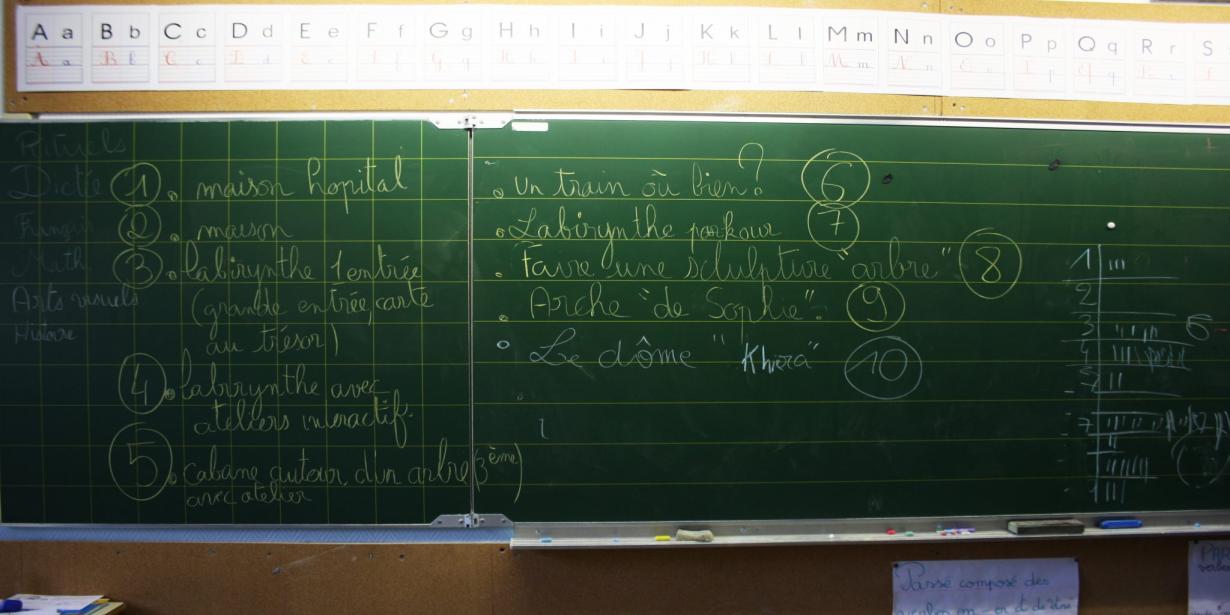 A a B b C c D d E e F f G g H h I i J j K k L l M m N n O o P p Q q R r S
Rituels
Dictée
Français
Math
Arts visuels
Histoire
1 . maison hopital
2 . maison
3 . labirynthe 1 entrée
(grande entrée, carte
au trésor)
4 . labirynthe avec
ateliers interactif.
5 . cabane autour d'un arbre (3ème)
avec atelier
. un train où bien? 6
. Labirynthe parkour 7
. Faire une sculpture "arbre" 8
. Arche "de Sophie". 9
. Le dôme "Khiera" 10
1
2
3 6
4
5
7
Passé composé des